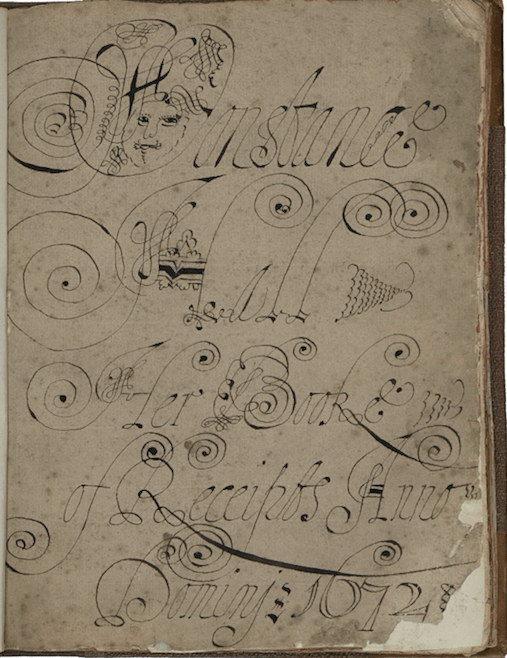 Constance
Hall
Her Booke
of Receipts Anno
Domini: 1672